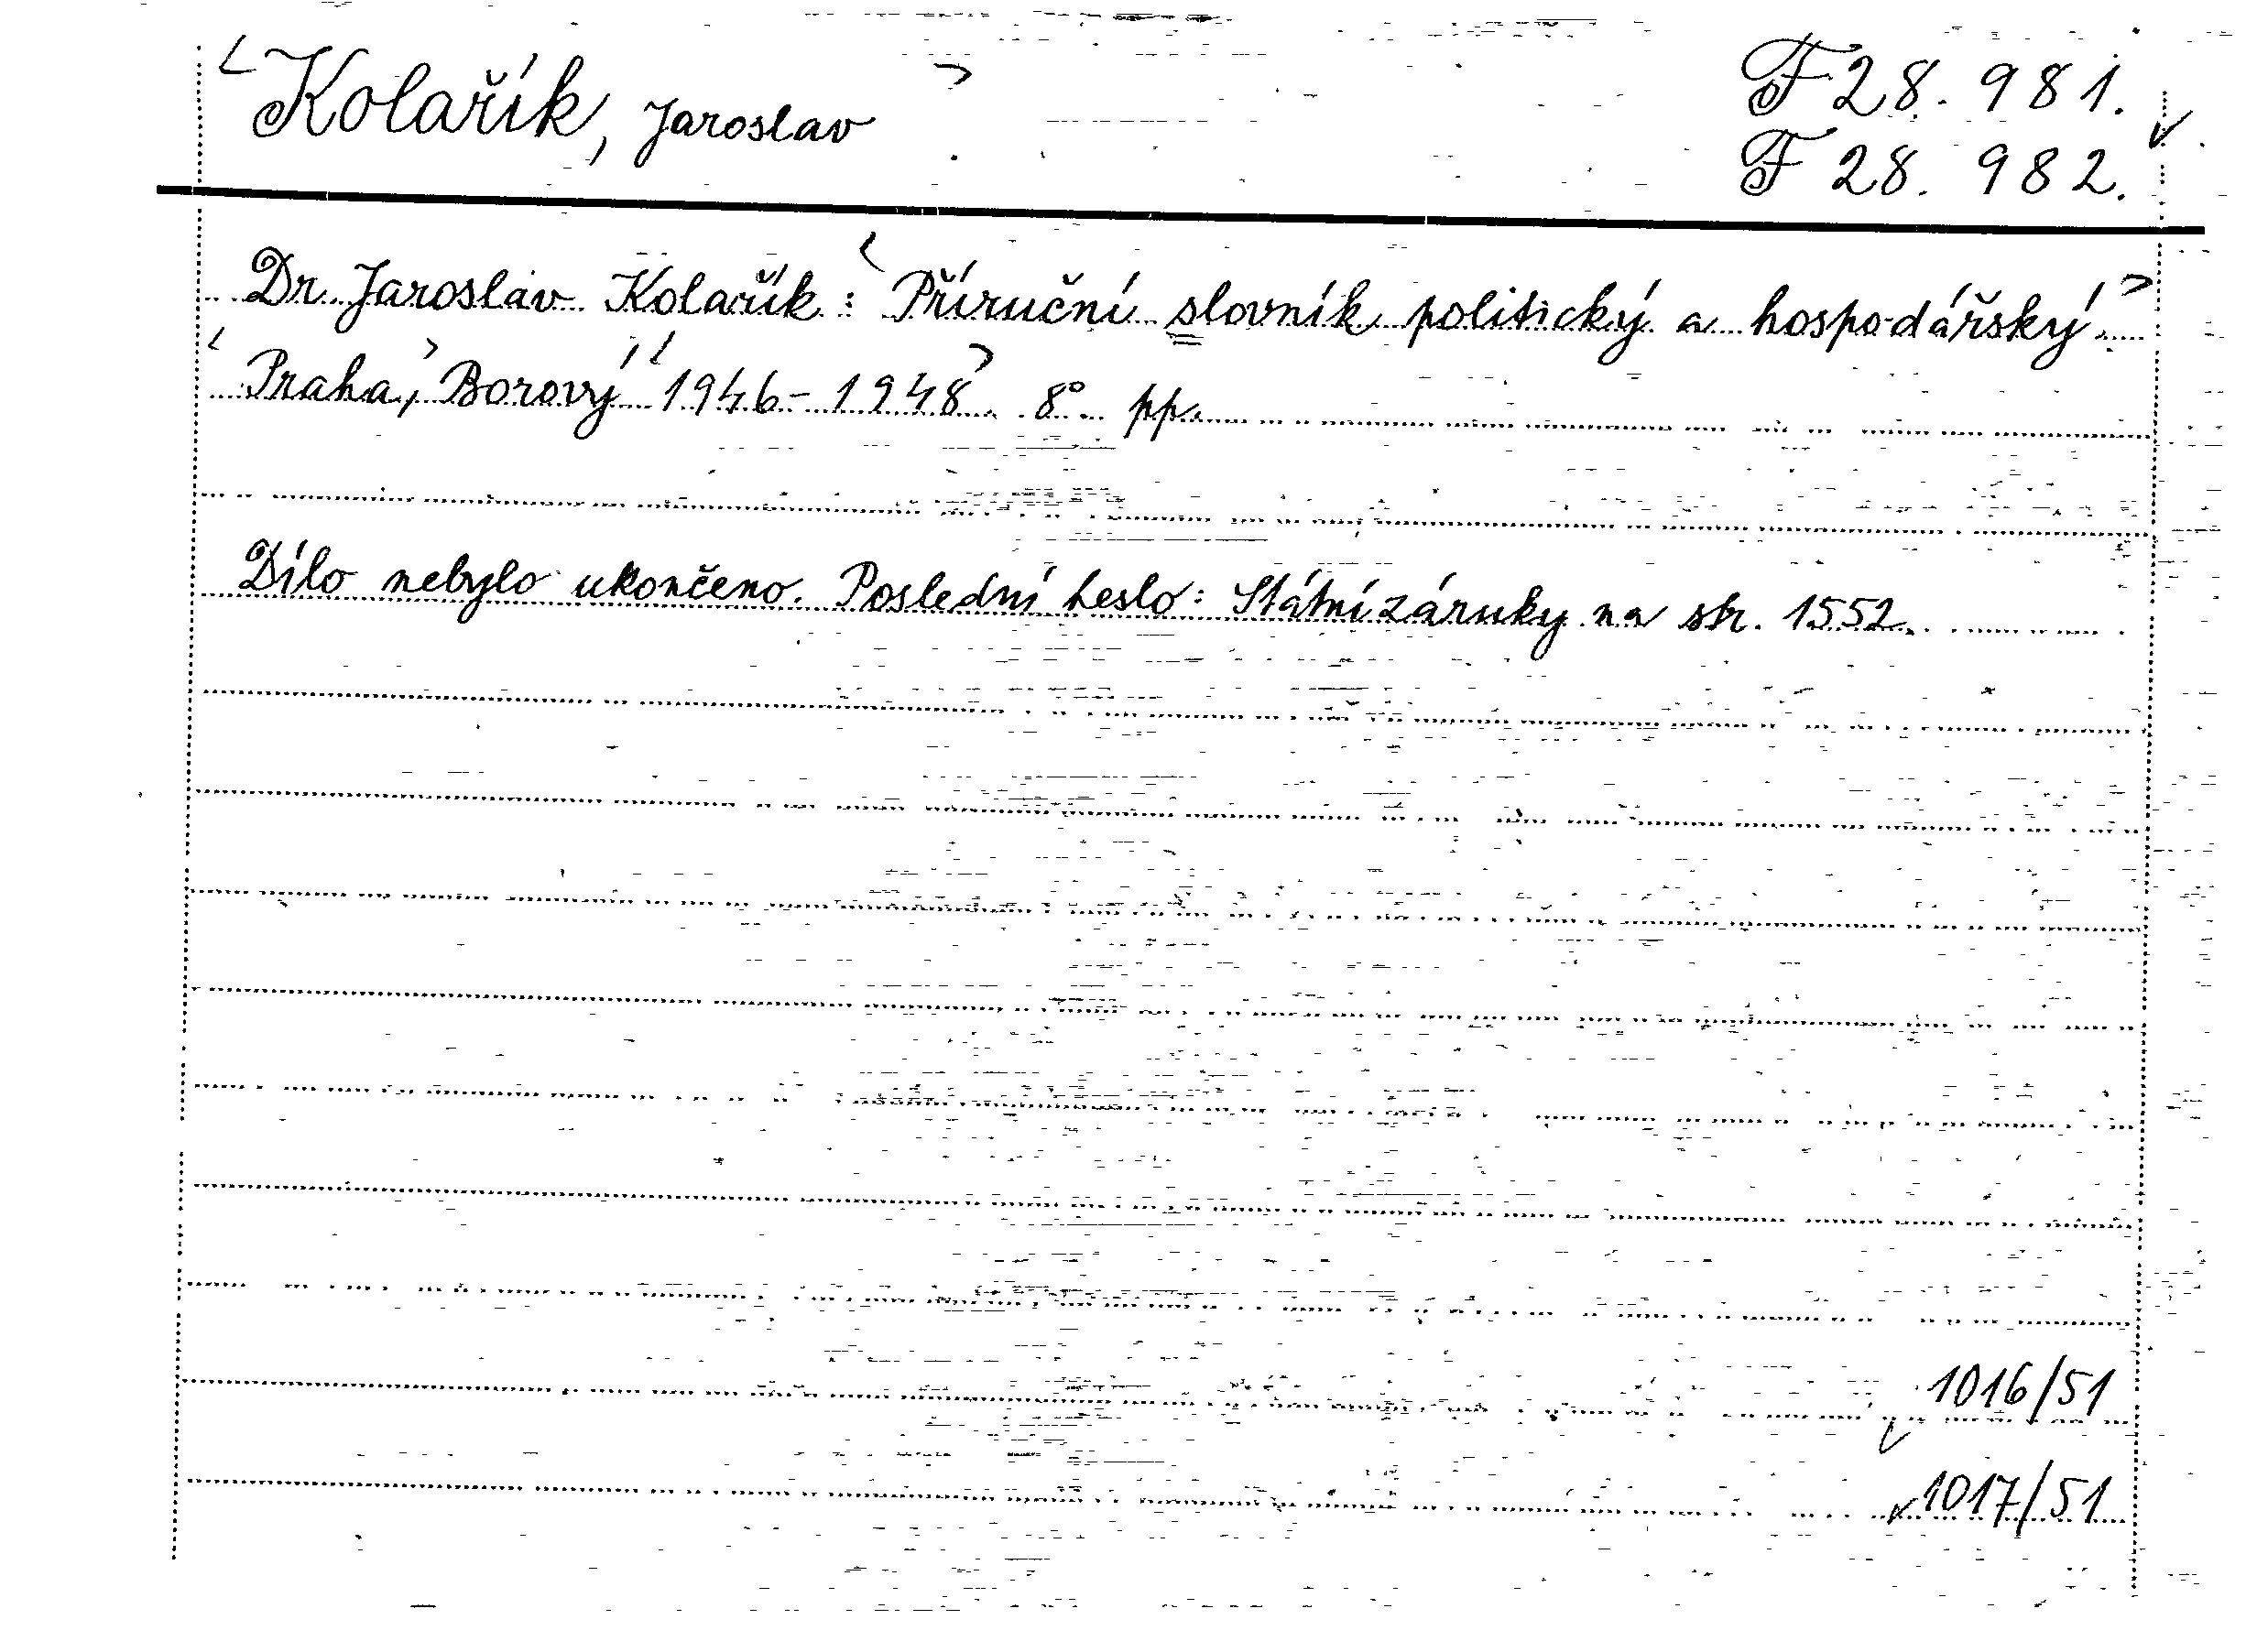 Kolařík, Jaroslav
F 28.981.
F 28.982.
Dr. Jaroslav Kolařík: Příruční slovník politický a hospodářský.
Praha, Borový 1946-1948. 8° pp.
Dílo nebylo ukončeno. Poslední heslo: Státní záruky na str. 1552.
1016/51
1017/51